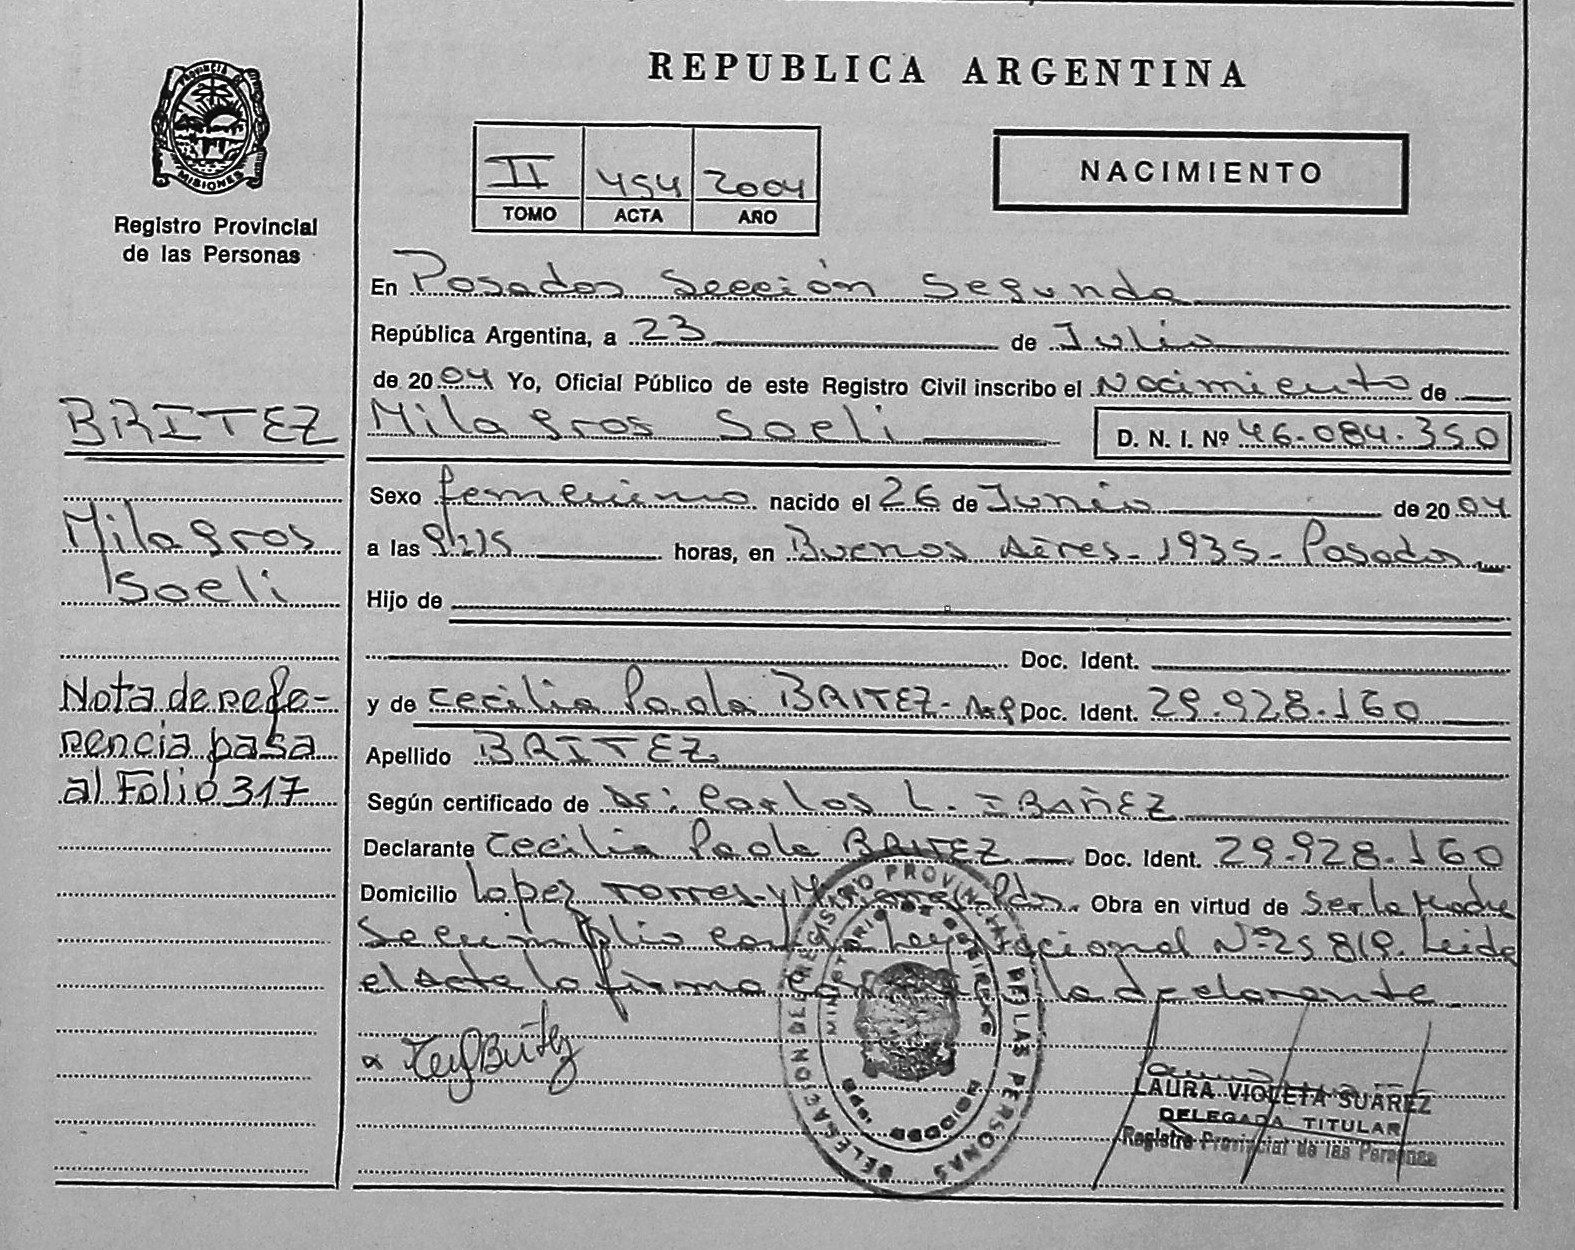 REPUBLICA ARGENTINA
PROVINCIA DE
MISIONES
Registro Provincial
de las Personas
II 454 2004
TOMO ACTA AÑO
NACIMIENTO
En Posadas Sección Segunda
República Argentina, a 23 de Julio
de 2004 Yo, Oficial Público de este Registro Civil inscribo el Nacimiento de
Milagros Soeli D. N. I. Nº 46.084.350
Sexo femenino nacido el 26 de Junio de 2004
a las horas, en Buenos Aires - 1935 - Posadas
Hijo de
Doc. Ident.
y de Cecilia Paola BRITEZ - Arg Doc. Ident. 29.928.160
Apellido BRITEZ
Según certificado de Dr: Carlos L. IBAÑEZ
Declarante Cecilia Paola BRITEZ Doc. Ident. 29.928.160
Domicilio Lopez Torres y Obra en virtud de ser la Madre
Se cumplio con la Ley Nacional Nº 25.819. Leida
el acta la firma la declarante
BRITEZ
Milagros
Soeli
Nota de refe-
rencia pasa
al Folio 317
DELEGACION DEL REGISTRO PROVINCIAL DE LAS PERSONAS
MINISTERIO DE GOBIERNO
LAURA VIOLETA SUAREZ
DELEGADA TITULAR
Registro Provincial de las Personas